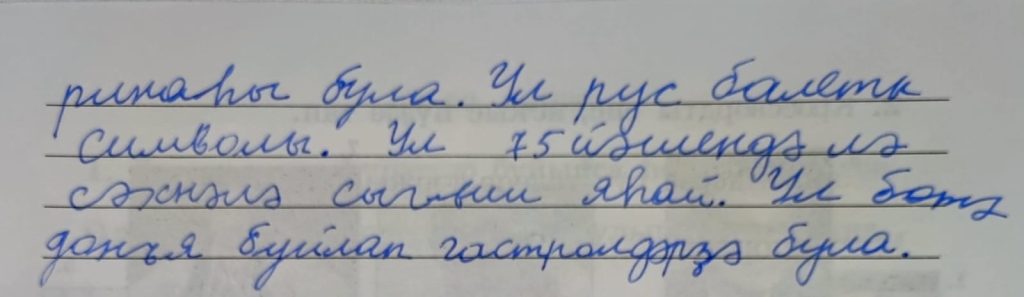 ринаһы була. Ул рус балеты
символы. Ул 75 йәшендә лә
сәхнәлә сығыш яһай. Ул бөтә
донъя буйлап гастролдәрҙә була.